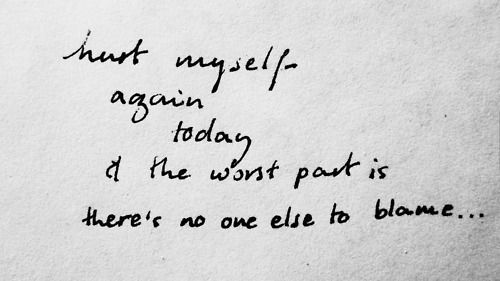 hurt myself
again
today
& the worst part is
there's no one else to blame...